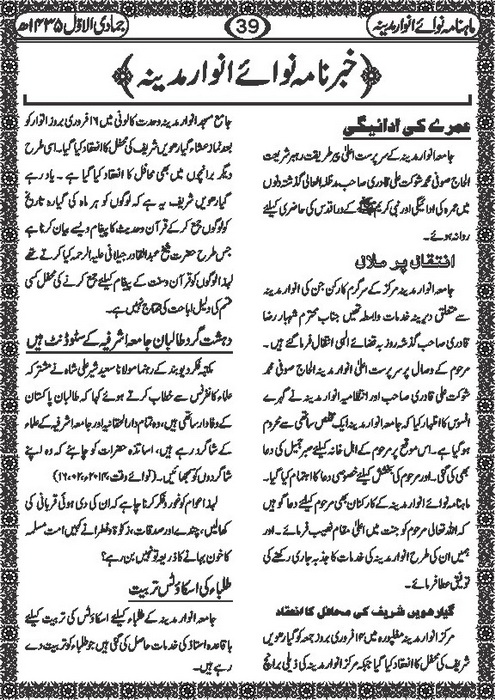 ماہنامہ نوائے انوار مدینہ
39
جمادی الاوّل ۱۴۳۵ھ
خبر نامہ نوائے انوار مدینہ
عمرے کی ادائیگی
جامعہ انوار مدینہ کے سرپرست اعلیٰ پیر طریقت رہبر شریعت
الحاج صوفی محمد شوکت علی قادری صاحب مدظلہ العالی گذشتہ دنوں
میں عمرہ کی ادائیگی اور نبی کریم ﷺ کے در اقدس کی حاضری کیلئے
روانہ ہوئے۔
انتقال پر ملال
جامعہ انوار مدینہ مرکز کے سرگرم کارکن جن کی انوار مدینہ
سے متعلق دیرینہ خدمات وابستہ تھیں جناب محترم شہباز رضا
قادری صاحب گذشتہ روز بہ قضائے الٰہی انتقال فرما گئے ہیں۔
مرحوم کے وصال پر سرپرست اعلیٰ انوار مدینہ الحاج صوفی محمد
شوکت علی قادری صاحب اور انتظامیہ انوار مدینہ نے گہرے
افسوس کا اظہار کیا کہ جامعہ انوار مدینہ ایک مخلص ساتھی سے محروم
ہو گیا ہے۔ اس موقع پر مرحوم کے اہل خانہ کیلئے صبر جمیل کی دعا
بھی کی گئی۔ اور مرحوم کی بخشش کیلئے خصوصی دعا کا اہتمام کیا گیا۔
ماہنامہ نوائے انوار مدینہ کے کارکنان بھی مرحوم کیلئے دعا گو ہیں
کہ اللہ تعالیٰ مرحوم کو جنت میں اعلیٰ مقام نصیب فرمائے۔ اور
ہمیں ان کی طرح انوار مدینہ کی خدمات کا جذبہ جاری رکھنے کی
توفیق عطا فرمائے۔
گیارھویں شریف کی محافل کا انعقاد
مرکز انوار مدینہ مغلپورہ میں ۱۴ فروری بروز جمعہ کو گیارھویں
شریف کی محفل کا انعقاد کیا گیا جبکہ مرکز انوار مدینہ کی ذیلی برانچ
جامع مسجد انوار مدینہ وحدت کالونی میں ۱۶ فروری بروز اتوار کو
بعد نماز عشاء گیارھویں شریف کی محفل کا انعقاد کیا گیا۔ اسی طرح
دیگر برانچوں میں بھی محافل کا انعقاد کیا گیا ہے۔ یاد رہے
گیارھویں شریف یہ ہے کہ لوگوں کو ہر ماہ کی گیارہ تاریخ
کو لوگوں جمع کر کے قرآن و حدیث کا پیغام ویسے بیان کرنا ہے
جس طرح حضرت شیخ عبدالقادر جیلانی علیہ الرحمہ کیا کرتے تھے
لہذا لوگوں کو قرآن و سنت کے پیغام کیلئے جمع کرنے کی محفل کسی
قسم کی دلیل اباحت کی محتاج نہیں ہے۔
دہشت گرد طالبان جامعہ اشرفیہ کے سٹوڈنٹ ہیں
مکتبہ فکر دیوبند کے رہنما مولانا سعید شیر علی شاہ نے مشترکہ
علماء کانفرنس سے خطاب کرتے ہوئے کہا کہ طالبان پاکستان
کے وفادار ساتھی ہیں، وہ تمام دار الحقانیہ اور جامعہ اشرفیہ کے علماء
کے شاگرد رہے ہیں، اساتذہ حضرات کو چاہئے کہ وہ اپنے
شاگردوں کو سمجھائیں۔ (نوائے وقت ۲۰۱۴،۰۲،۱۶)
لہذا عوام کو غور و فکر کرنا چاہے کہ ان کی دی ہوئی قربانی کی
کھالیں، چندے اور صدقات، زکوٰۃ و فطرانے کہیں امت مسلمہ
کا خون بہانے کا ذریعہ تو نہیں بن رہے؟
طلباء کی اسکاؤٹس تربیت
جامعہ انوار مدینہ کے طلباء کیلئے اسکاؤٹس کی تربیت کیلئے
باقاعدہ استاذ کی خدمات حاصل کی گئی ہیں جو طلباء کو تربیت دے
رہے ہیں۔